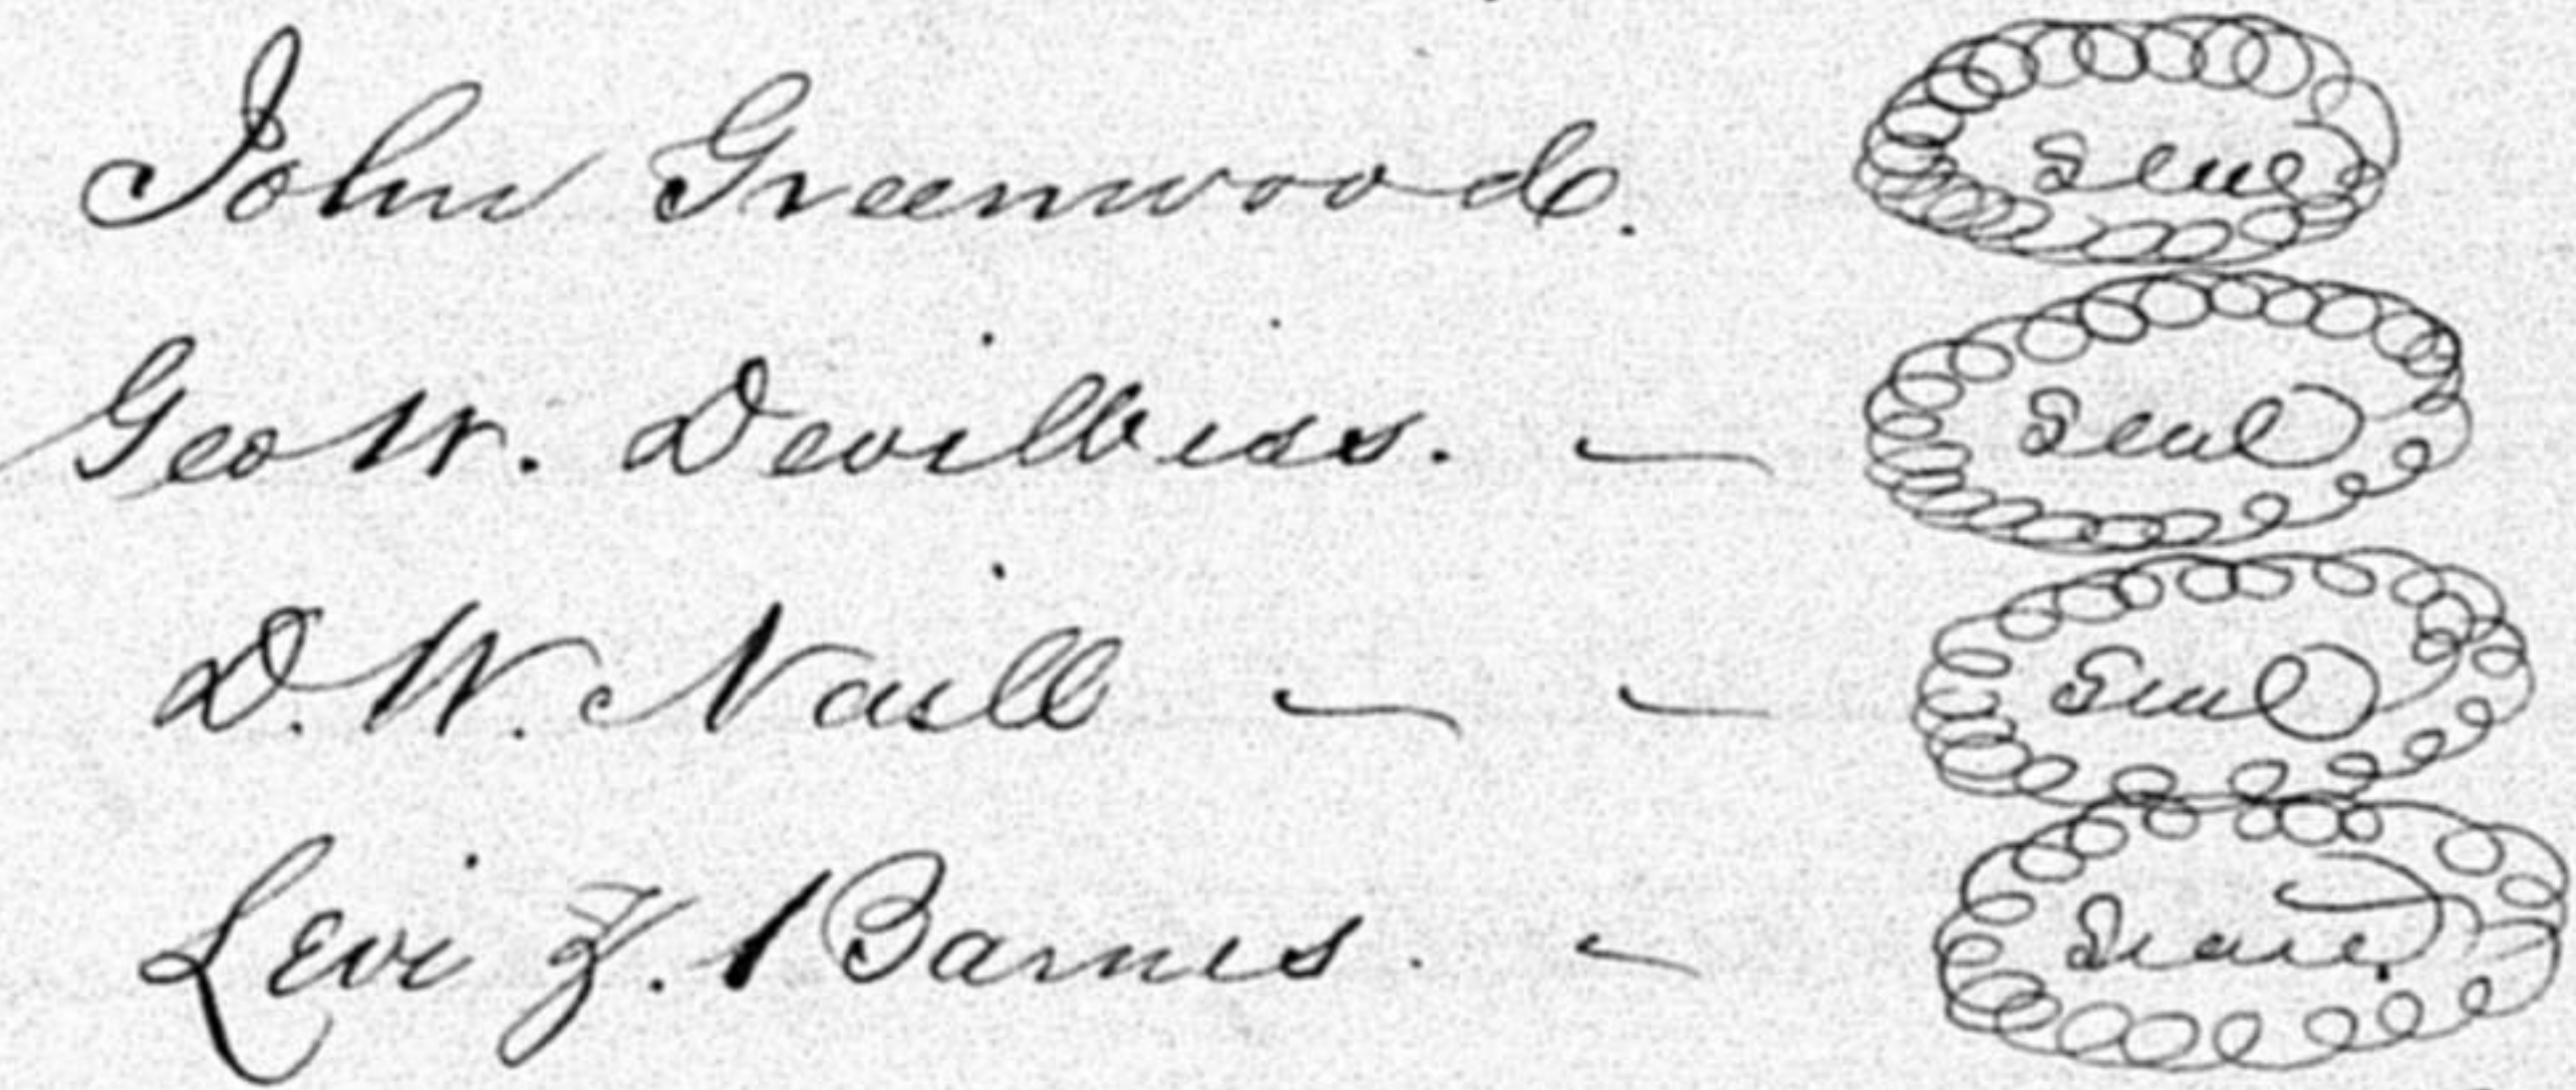 John Greenwood. Seal
Geo W. Devilbiss. — Seal
D. W. Naill — — Seal
Levi Z. Barnes. — Seal